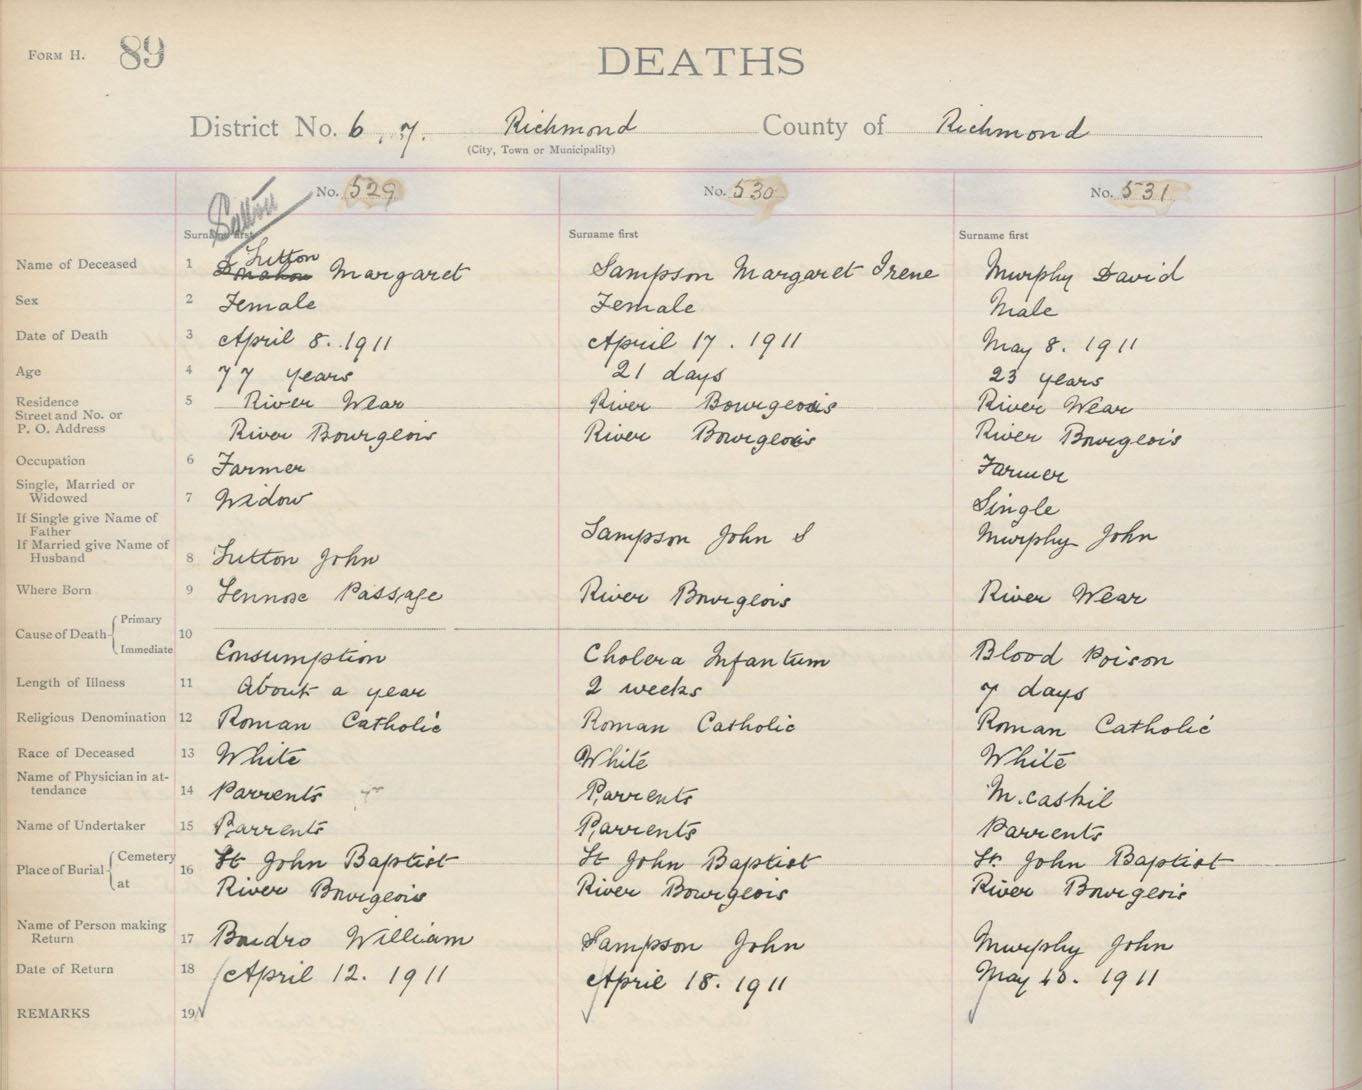 FORM H. 89
DEATHS
District No. 6, 7. Richmond County of Richmond
(City, Town or Municipality)
No. 529 No. 530 No. 531
Sutton
Surname first Surname first Surname first
Sutton
Name of Deceased 1 Margaret Sampson Margaret Irene Murphy David
Sex 2 Female Female Male
Date of Death 3 April 8. 1911 April 17. 1911 May 8. 1911
Age 4 77 years 21 days 23 years
Residence 5 River Wear River Bourgeois River Wear
Street and No. or
P. O. Address River Bourgeois River Bourgeois River Bourgeois
Occupation 6 Farmer Farmer
Single, Married or
Widowed 7 Widow Single
If Single give Name of
Father Sampson John S Murphy John
If Married give Name of
Husband 8 Sutton John
Where Born 9 Lennox Passage River Bourgeois River Wear
Primary
Cause of Death 10
Immediate Consumption Cholera Infantum Blood Poison
Length of Illness 11 About a year 2 weeks 7 days
Religious Denomination 12 Roman Catholic Roman Catholic Roman Catholic
Race of Deceased 13 White White White
Name of Physician in at-
tendance 14 Parrents Parrents M.caskil
Name of Undertaker 15 Parrents Parrents Parrents
Cemetery St John Baptist St John Baptist St. John Baptist
Place of Burial 16
at River Bourgeois River Bourgeois River Bourgeois
Name of Person making
Return 17 William Sampson John Murphy John
Date of Return 18 April 12. 1911 April 18. 1911 May 10. 1911
REMARKS 19